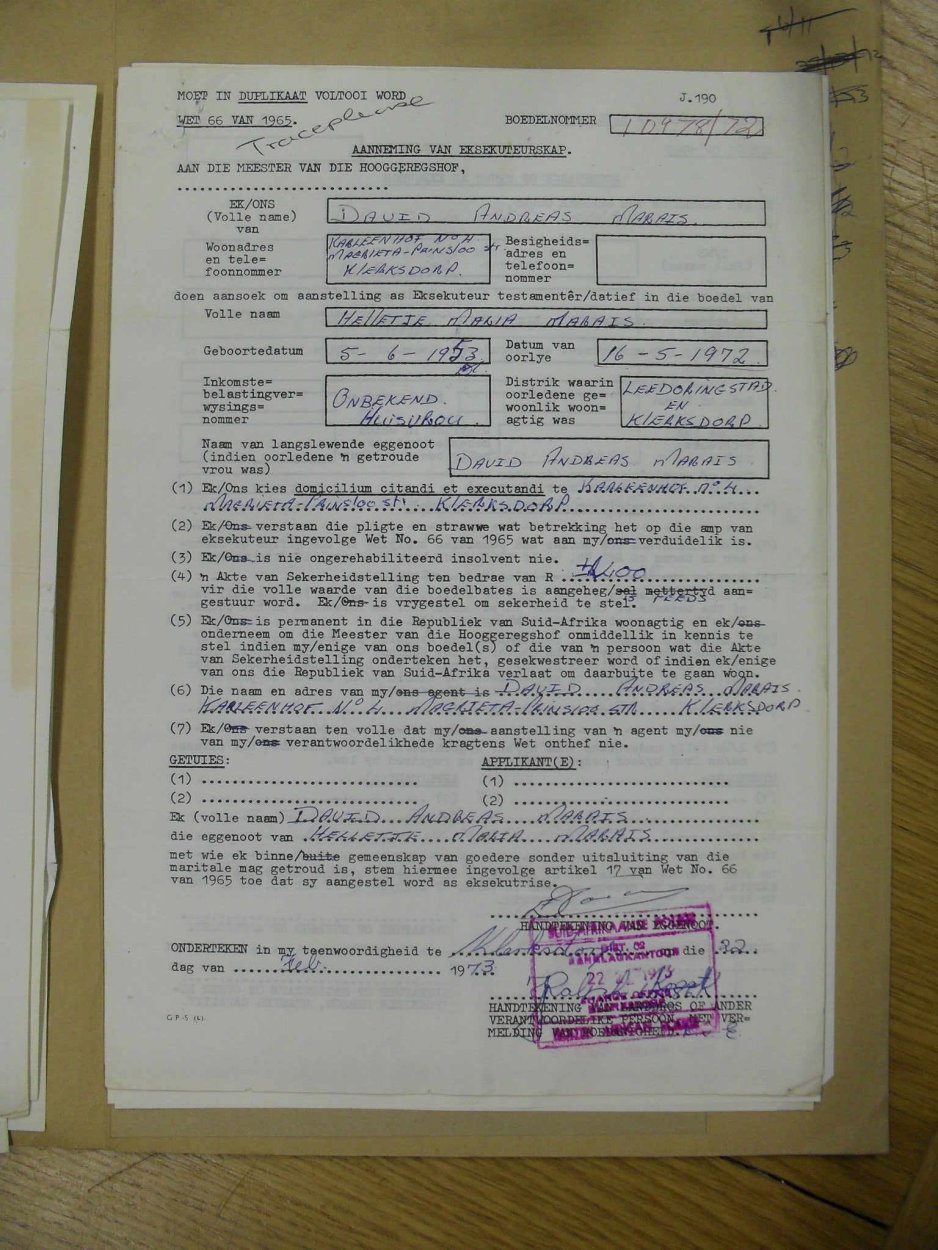 MOET IN DUPLIKAAT VOLTOOI WORD
J.190
WET 66 VAN 1965.
Trace please
BOEDELNOMMER 10978/72
AANNEMING VAN EKSEKUTEURSKAP.
AAN DIE MEESTER VAN DIE HOOGGEREGSHOF,
EK/ONS (Volle name) van DAVID ANDREAS MARAIS.
Woonadres en tele= foonnommer KARLEENHOF No 4 MAGRIETA-PRINSLOO str KLERKSDORP.
Besigheids= adres en telefoon= nommer
doen aansoek om aanstelling as Eksekuteur testamentêr/datief in die boedel van
Volle naam HELLETJE MARIA MARAIS.
Geboortedatum 5-6-1953.
Datum van oorlye 16-5-1972.
Inkomste= belastingver= wysings= nommer ONBEKEND. HUISVROU.
Distrik waarin oorledene ge= woonlik woon= agtig was LEEDORINGSTAD. EN KLERKSDORP.
Naam van langslewende eggenoot (indien oorledene 'n getroude vrou was) DAVID ANDREAS MARAIS.
(1) Ek/Ons kies domicilium citandi et executandi te KARLEENHOF No 4.
MAGRIETA-PRINSLOO str. KLERKSDORP
(2) Ek/Ons verstaan die pligte en strawwe wat betrekking het op die amp van
eksekuteur ingevolge Wet No. 66 van 1965 wat aan my/ons verduidelik is.
(3) Ek/Ons is nie ongerehabiliteerd insolvent nie.
(4) 'n Akte van Sekerheidstelling ten bedrae van R
vir die volle waarde van die boedelbates is aangeheg/sal mettertyd aan=
gestuur word. Ek/Ons is vrygestel om sekerheid te stel.
(5) Ek/Ons is permanent in die Republiek van Suid-Afrika woonagtig en ek/ons
onderneem om die Meester van die Hooggeregshof onmiddellik in kennis te
stel indien my/enige van ons boedel(s) of die van 'n persoon wat die Akte
van Sekerheidstelling onderteken het, gesekwestreer word of indien ek/enige
van ons die Republiek van Suid-Afrika verlaat om daarbuite te gaan woon.
(6) Die naam en adres van my/ons agent is DAVID ANDREAS MARAIS.
KARLEENHOF No 4 MAGRIETA-PRINSLOO STR KLERKSDORP
(7) Ek/Ons verstaan ten volle dat my/ons aanstelling van 'n agent my/ons nie
van my/ons verantwoordelikhede kragtens Wet onthef nie.
GETUIES: APPLIKANT(E):
(1) (1)
(2) (2)
Ek (volle naam) DAVID ANDREAS MARAIS
die eggenoot van HELLETJIE MARIA MARAIS
met wie ek binne/buite gemeenskap van goedere sonder uitsluiting van die
maritale mag getroud is, stem hiermee ingevolge artikel 17 van Wet No. 66
van 1965 toe dat sy aangestel word as eksekutrise.
HANDTEKENING VAN EGGENOOT.
ONDERTEKEN in my teenwoordigheid te Klerksdorp op die 22
dag van Feb. 1973
HANDTEKENING VAN LANDDROS OF ANDER
VERANTWOORDELIKE PERSOON, MET VER=
MELDING VAN HOEDANIGHEID.
G.P.-S. (L)